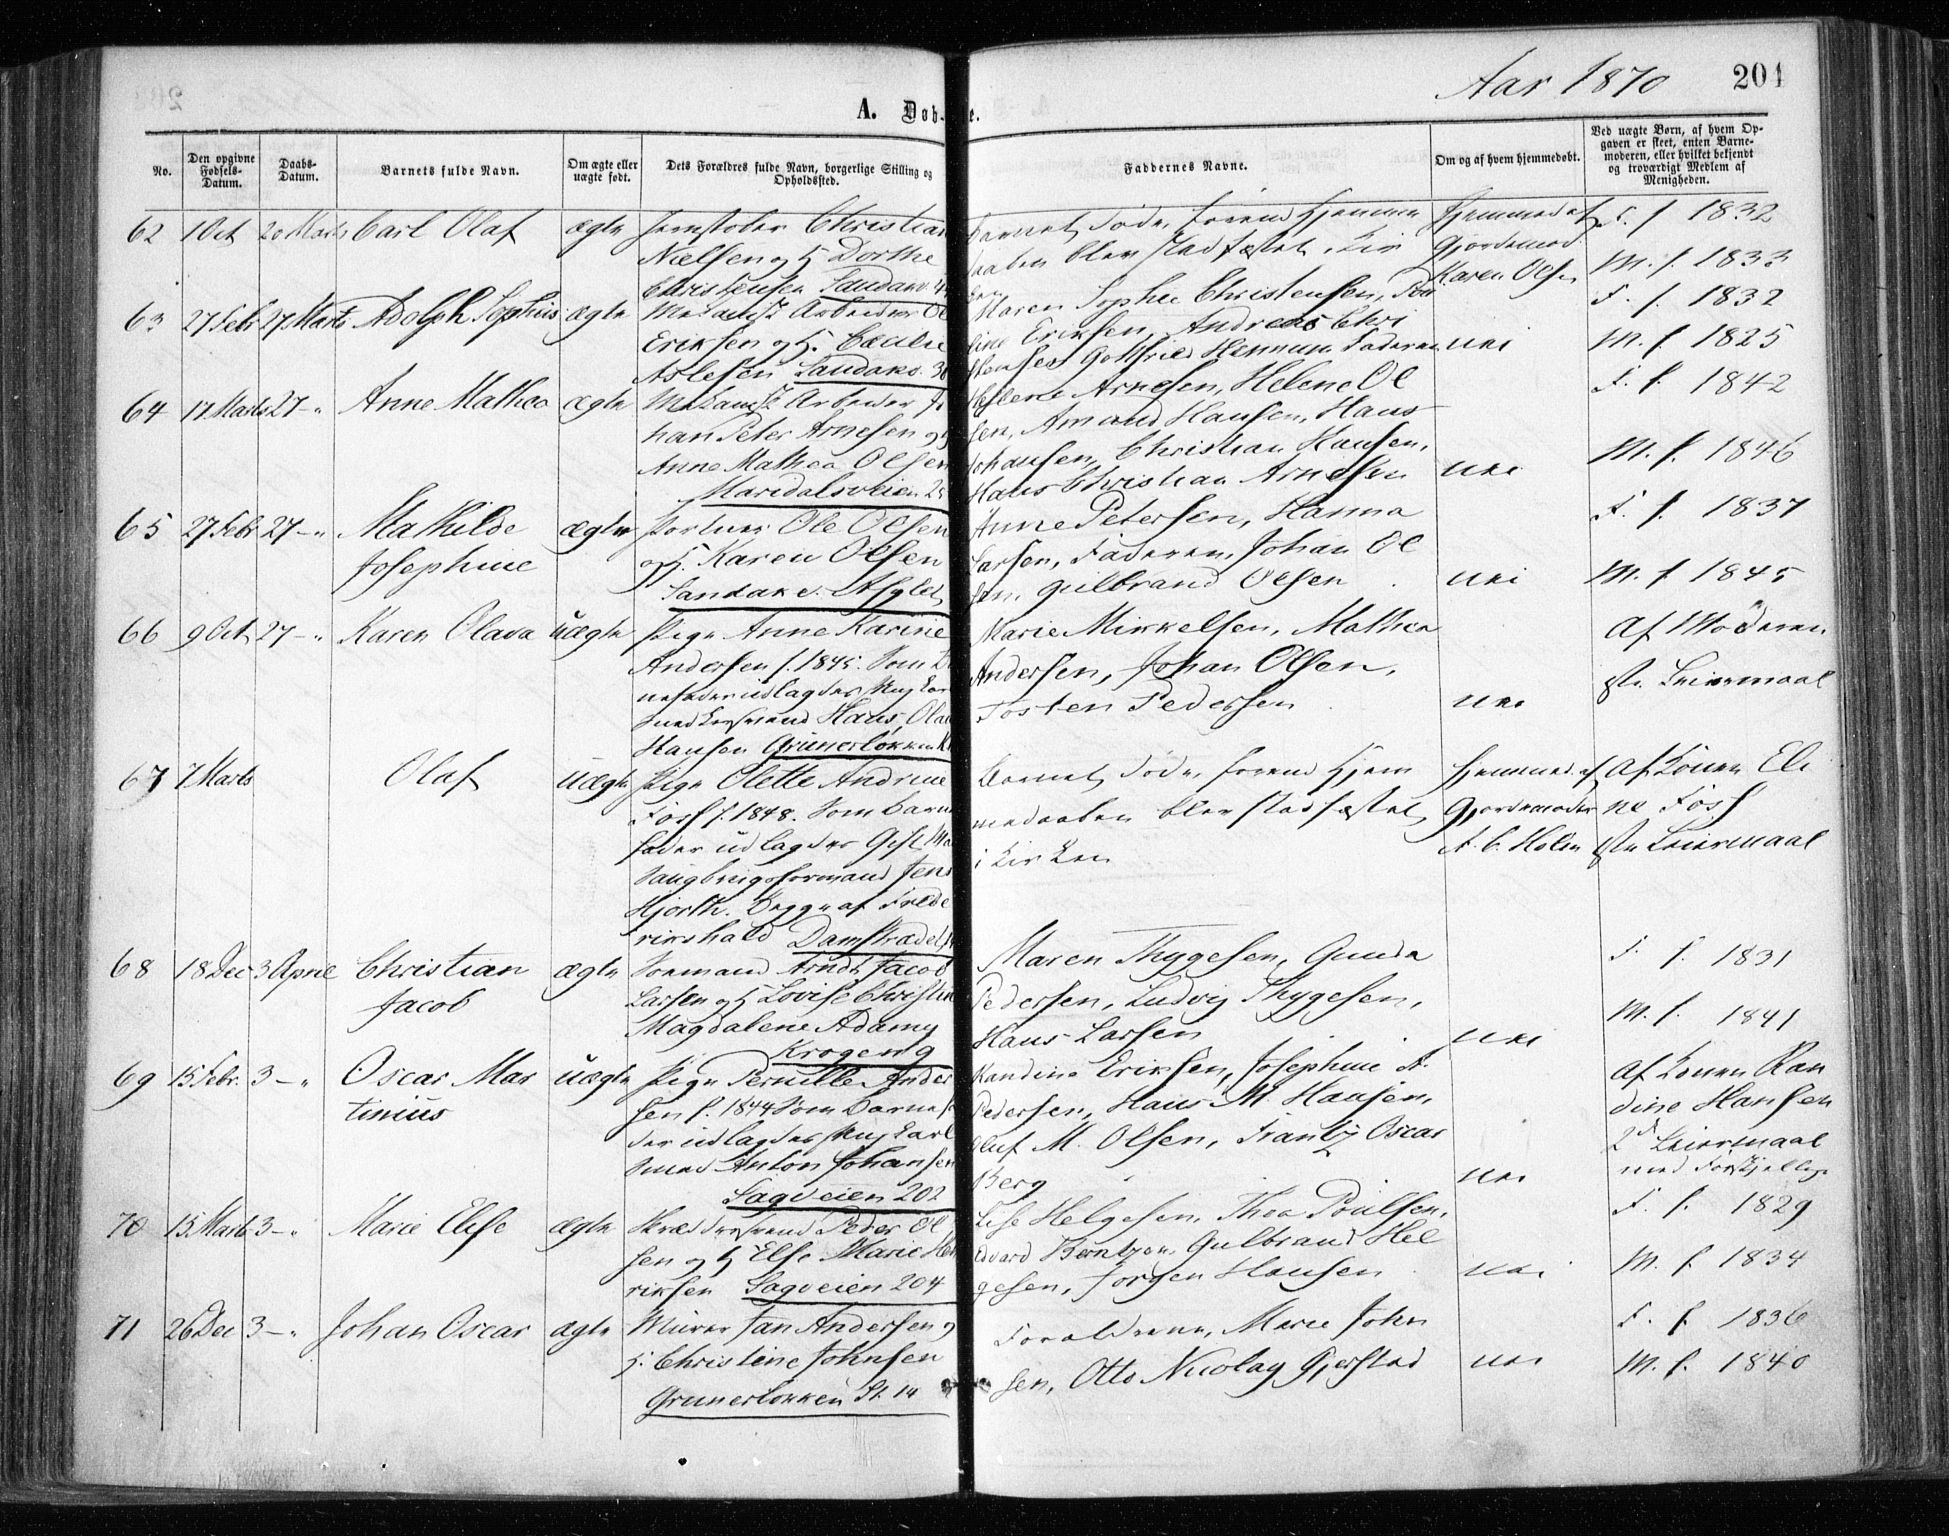 Aar 1870
201
A. Døb- e.
No.
Den opgivne Fødsels-Datum.
Daabs-Datum.
Barnets fulde Navn.
Om ægte eller uægte født.
Dets Forældres fulde Navn, borgerlige Stilling og Opholdssted.
Faddernes Navne.
Om og af hvem hjemmedøbt.
Ved uægte Børn, af hvem Opgaven er skeet, enten Barnemoderen, eller hvilket bekjendt og troværdigt Medlem af Menigheden.
62 1 Oct 20 Marts Carl Olaf ægte Jernstøber Christian
Nielsen og H. Dorthe
Christensen Sandakv. 44
Barnet døde, forend Hjemme
daaben blev stadfæstet i Kir
ken
Hjemmed af
Gjordemod.
Karen Olsen
F. f. 1832
M. f. 1833
63 27 Febr 27 Marts Adolph Sophus ægte Mekanisk Arbeider Ol
Eriksen og H. Cecilie
Aslesen Sandakv. 36
Maren Sophie Christensen, Pau
line Eriksen, Andreas Chri
stensen Gottfried Herman Faderen
nei
F. f. 1832
M. f. 1825
64 17 Marts 27 - " Anne Mathea ægte Mekanisk Arbeider Jo
han Peter Arnesen og H
Anne Mathea Olsen
Maridalsveien 25
Helene Arnesen, Helene Ol
sen, Amund Hansen, Hans
Johansen, Christian Hansen,
Hans Christian Arnesen
nei
F. f. 1842
M. f. 1846
65 27 Febr 27 - " Mathilde
Josephine
ægte Portner Ole Olsen
og H. Karen Olsen
Sandakv. Asylet
Anne Petersen, Hanna
Larsen, Faderen, Johan Ol
sen, Gulbrand Olsen
nei
F. f. 1837
M. f. 1845
66 9 Oct 27 - " Karen Olava uægte Pige Anne Karine
Andersen f. 1845. Som Bar
nefader udlagdes Ung Karl
Hans Olai
Hansen Grünerløkken
Marie Mikkelsen, Mathea
Andersen, Johan Olsen,
Tosten Pedersen
nei
Af Moderen
1ste Leiermaal
67 7 Marts Olaf uægte Pige Olette Andrine
Foss f. 1848. Som Barne
fader udlagdes Gift Ma
Saugbrugsformand Jens
Hjorth. Begge af Frede
rikshald Damstrædet
Barnet døde, forend Hjem
medaaben blev stadfæstet
i Kirken
Hjemmed. af
Gjordemoder
A. C. Holm
Af Konen Eli
ne Foss
1ste Leiermaal
68 18 Dec 3 April Christian
Jacob
ægte Formand Arndt Jacob
Larsen og H Lovise Christine
Magdalene Adamy
Krogeng 9
Maren Thygesen, Gunda
Pedersen, Ludvig Thygesen,
Hans Larsen
nei
F. f. 1831
M. f. 1841
69 15 Febr. 3 - " Oscar Mar
tinius
uægte Pige Pernille Ander
sen f. 1844 Som Barnefa
der udlagdes Ung Karl
Smed Anton Johansen
Sagveien 202
Randine Eriksen, Josephine A.
Pedersen, Hans M Hansen,
Oluf M. Olsen, Frantz Oscar
Berg
nei
Af Konen Ran
dine Hansen
2d Leiermaal
med Forskjellige
70 15 Marts 3 - " Marie Elise ægte Skræddersvend Peder Ol
sen og H Else Marie Hen
riksen Sagveien 204
Lise Helgesen, Thea Poulsen,
Edvard Berntzen, Gulbrand Hel
gesen, Jørgen Hansen
nei
F. f. 1829
M. f. 1834
71 26 Dec 3 - " Johan Oscar ægte Murer Jan Andersen og
H. Christine Johnsen
Grünerløkken St. 14
Forældrene, Marie John
sen, Otto Nicolay Gjerstad
nei
F. f. 1836
M. f. 1840